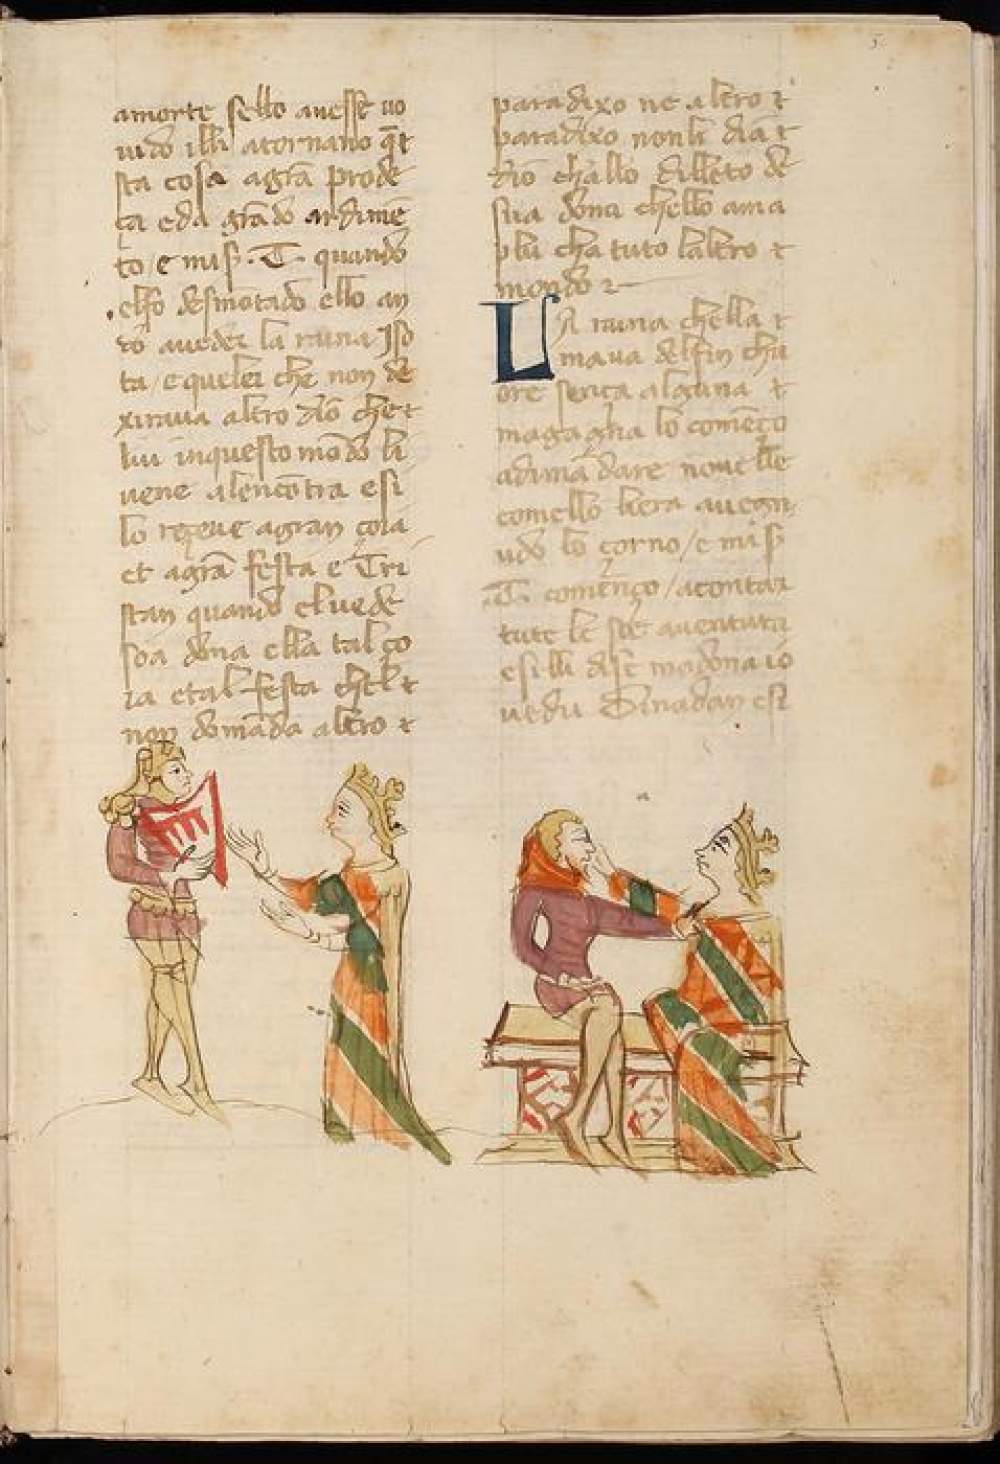 5
amorte sello auesse uo
iudo illi atornano q̄t
sta cosa agrā prode
ça eda grādo ardimē
to / e mis̄ . T . quando
elfo desmōtado ello an
dò aueder la raina Iso
ta / e quelei che non de
xiraua altro diō che t
lui inquesto mōdo li
uene alencōtra e si
lo reçeue agran çoia
et agrā festa e Tri
stan quando el uede
soa dona ella tal ço
ia etal festa chel t
non domāda altro t
paradixo ne altro t
paradixo non li diā t
diō challo dilleto de
sua dona chello ama
plu cha tuto laltro t
mondo
LA raina chella t
maua delfin chu
ore sença alguna t
magagna lo començo
adimādare nouelle
comello liera auegn
udo lo corno / e mis̄
. T . començo / acontar
tute le soe auentura
e silli dise madona io
uedu Dinadan esi